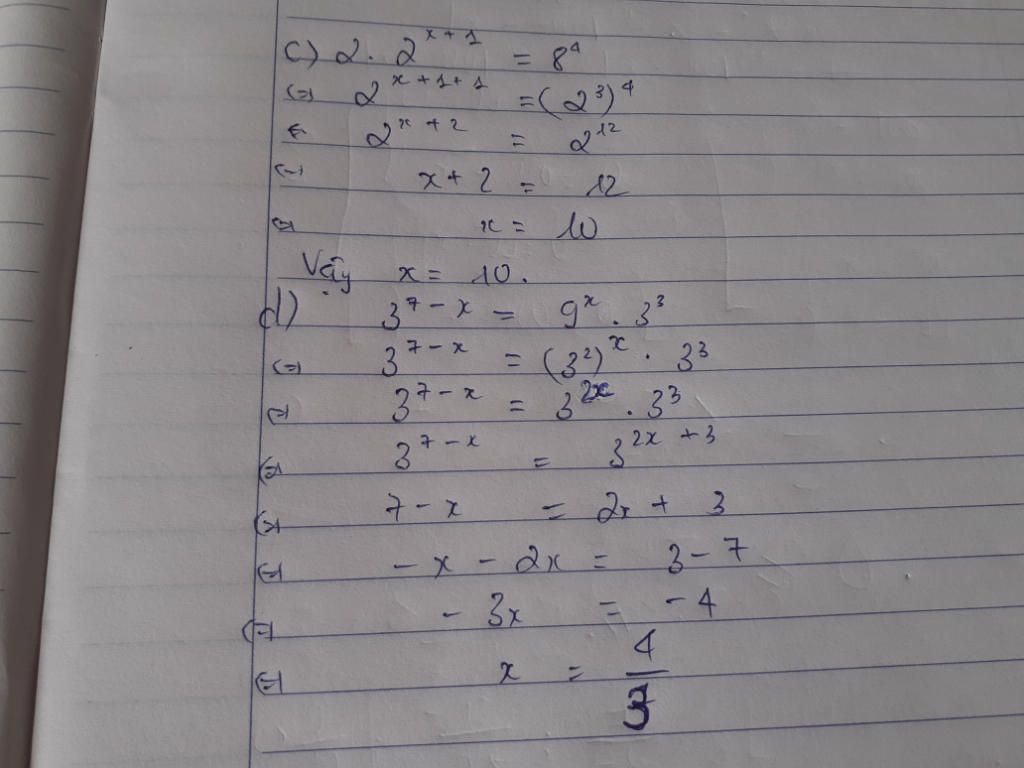 c) 2 . 2^{x+1} = 8^4
(=) 2^{x+1+1} = (2^3)^4
(= 2^{x+2} = 2^{12}
(=) x + 2 = 12
(=) x = 10
Vậy x = 10.
d) 3^{7-x} = 9^x . 3^3
(=) 3^{7-x} = (3^2)^x . 3^3
(=) 3^{7-x} = 3^{2x} . 3^3
(=) 3^{7-x} = 3^{2x+3}
(=) 7 - x = 2x + 3
(=) - x - 2x = 3 - 7
(=) - 3x = - 4
(=) x = \frac{4}{3}